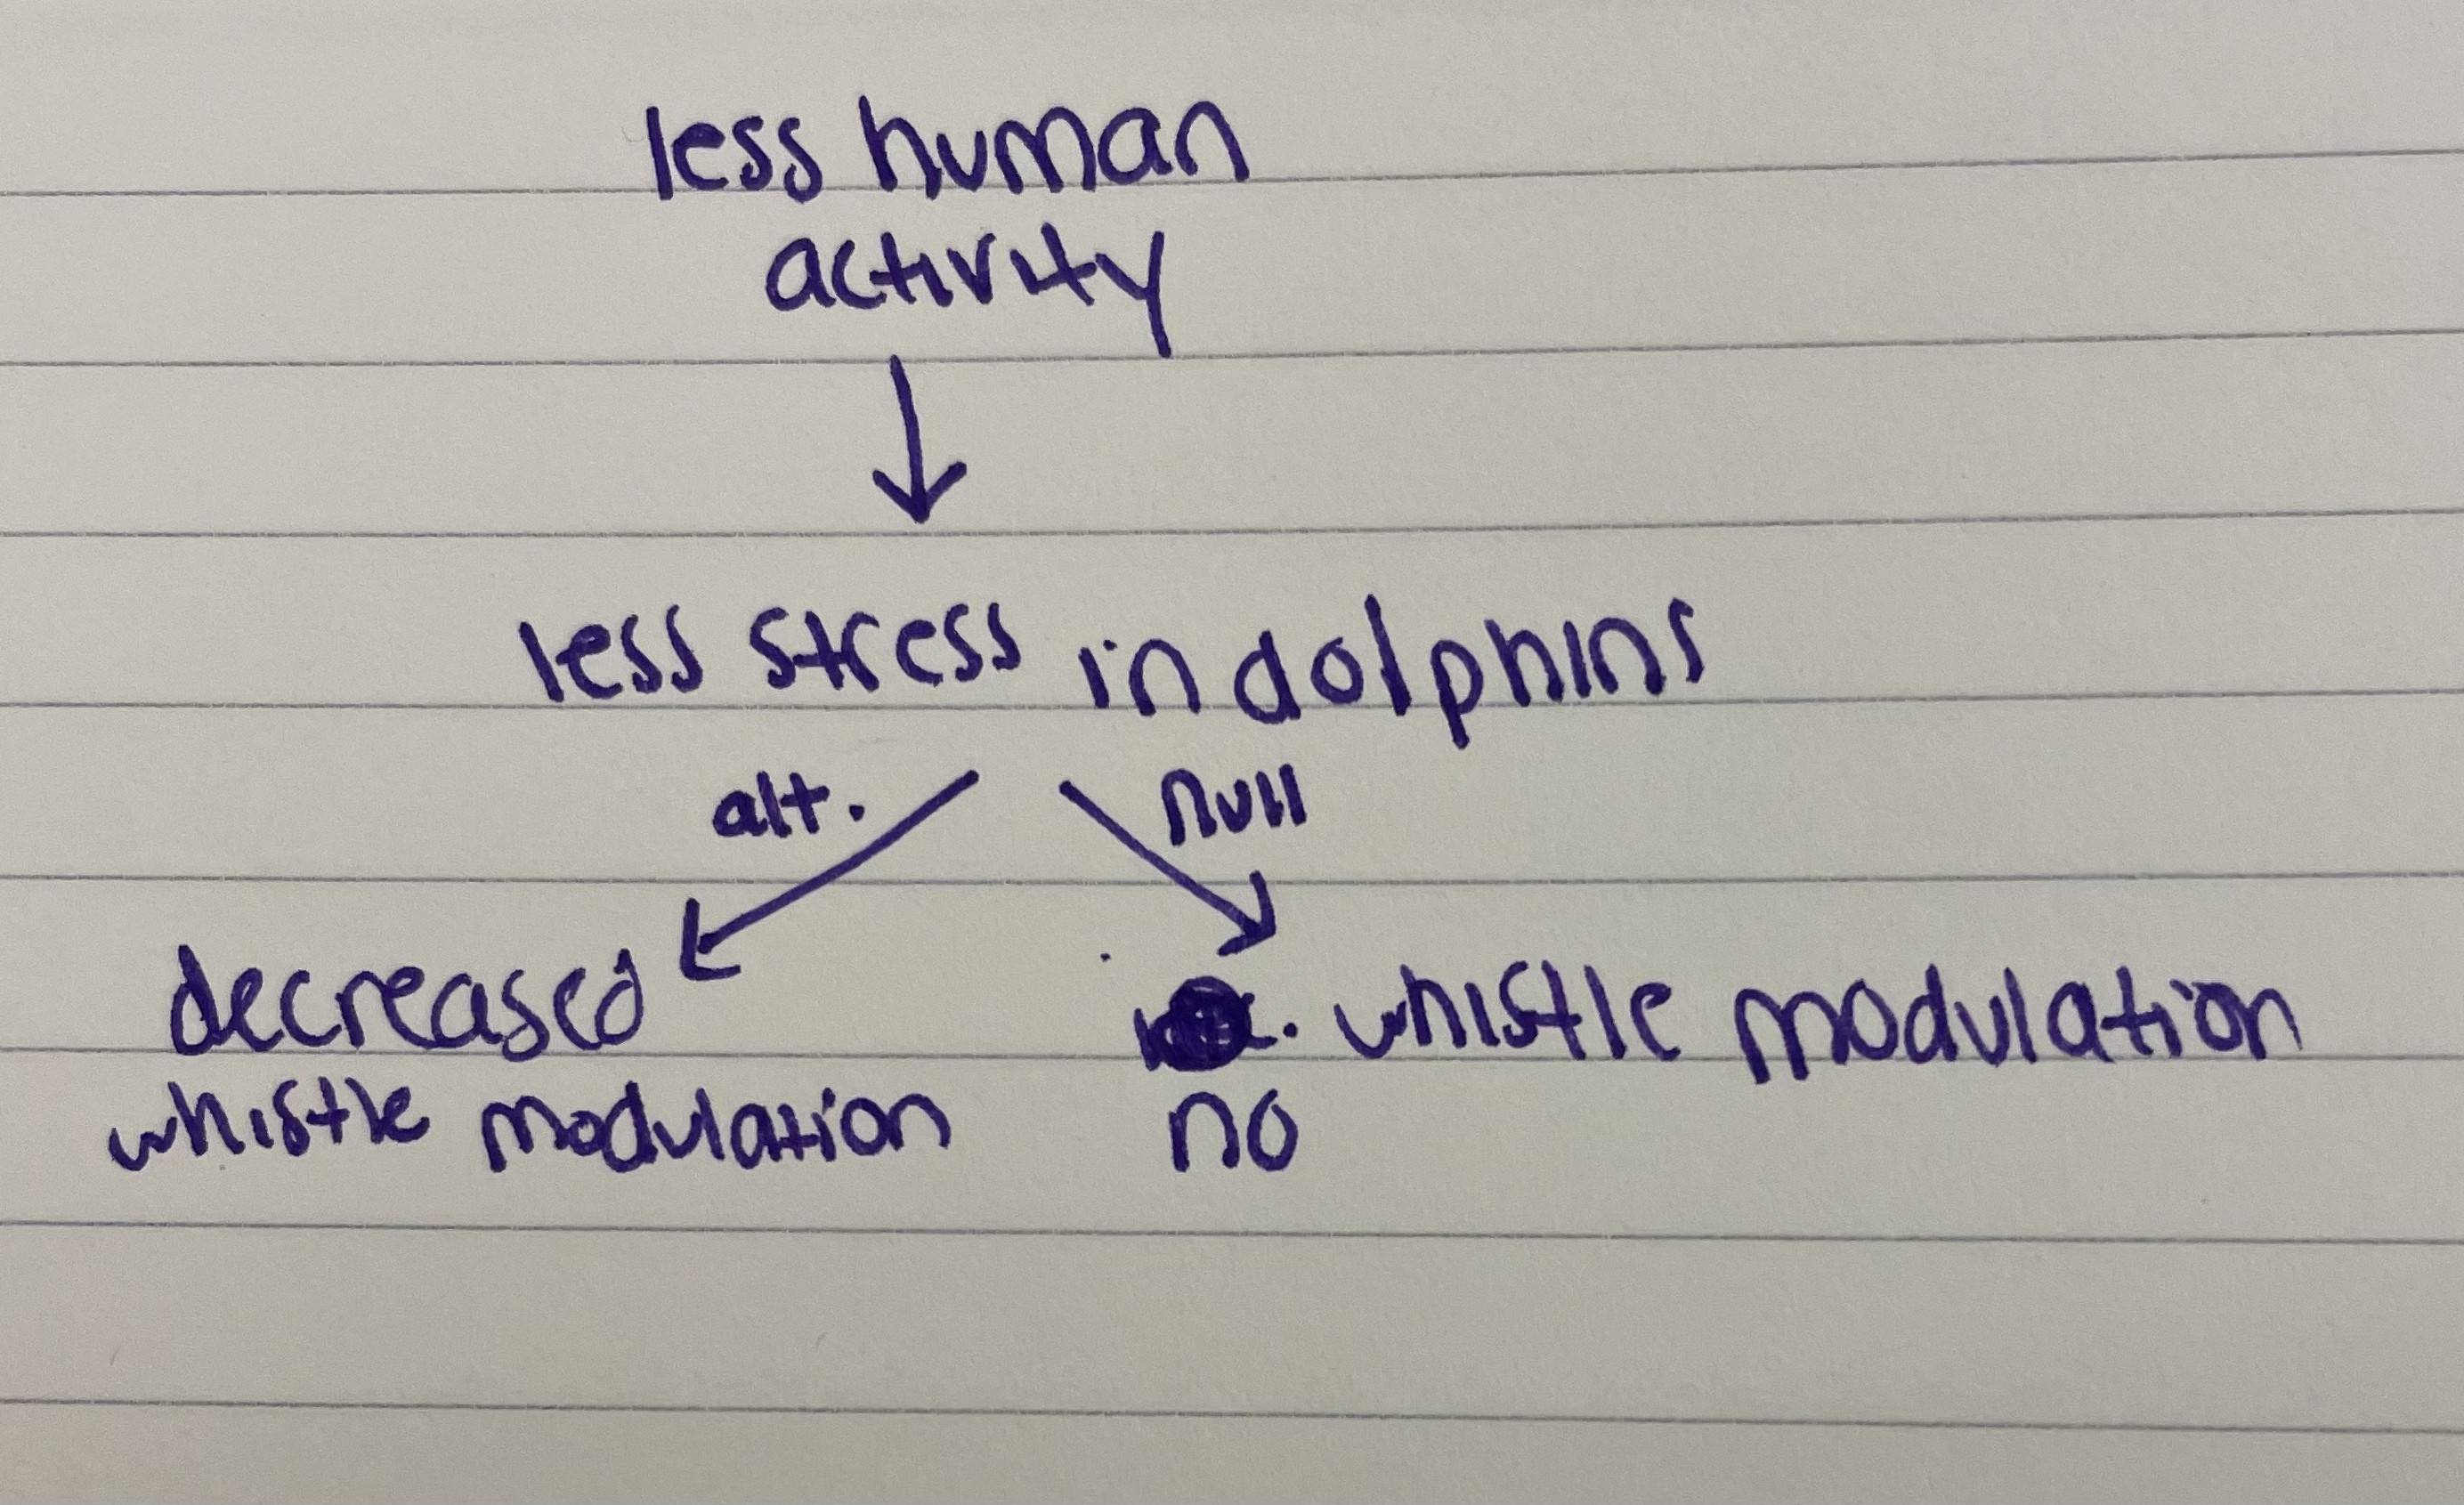 less human
activity
less stress in dolphins
alt.
null
decreased
whistle modulation
whistle modulation
no